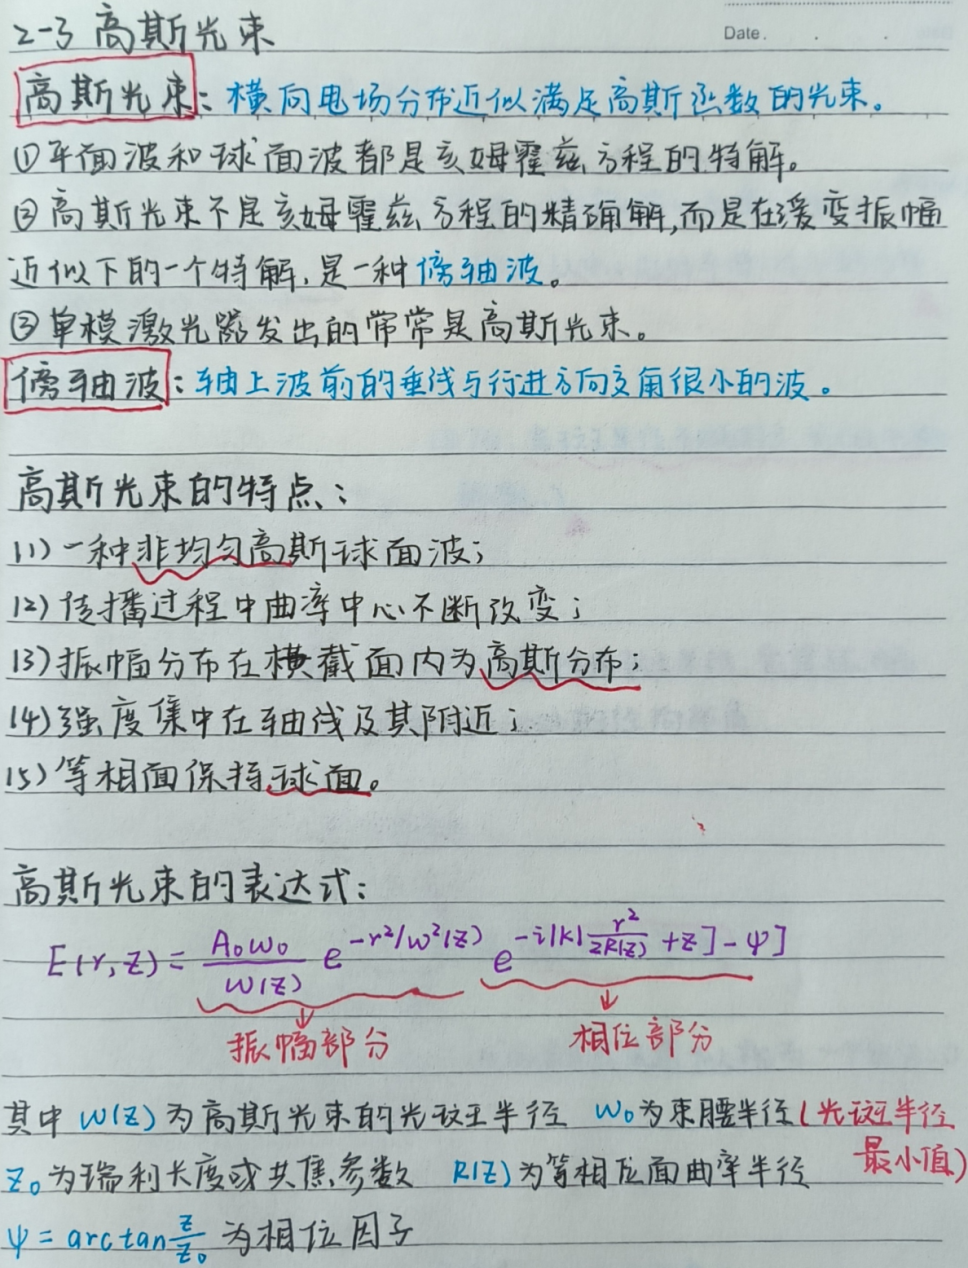 Date. . .
2-3 高斯光束
高斯光束：横向电场分布近似满足高斯函数的光束。
①平面波和球面波都是亥姆霍兹方程的特解。
②高斯光束不是亥姆霍兹方程的精确解,而是在缓变振幅
近似下的一个特解,是一种傍轴波。
③单模激光器发出的常常是高斯光束。
傍轴波：轴上波前的垂线与行进方向交角很小的波。
高斯光束的特点：
(1)一种非均匀高斯球面波；
(2)传播过程中曲率中心不断改变；
(3)振幅分布在横截面内为高斯分布；
(4)强度集中在轴线及其附近；
(5)等相面保持球面。
高斯光束的表达式：
E(r,z) = \frac{A₀ω₀}{ω(z)} e^{-r²/ω²(z)} e^{-i[k[\frac{r²}{2R(z)}+z]-ψ]}
振幅部分 相位部分
其中 ω(z)为高斯光束的光斑半径 ω₀为束腰半径(光斑半径
最小值)
z₀为瑞利长度或共焦参数 R(z)为等相位面曲率半径
ψ = arctan\frac{z}{z₀} 为相位因子